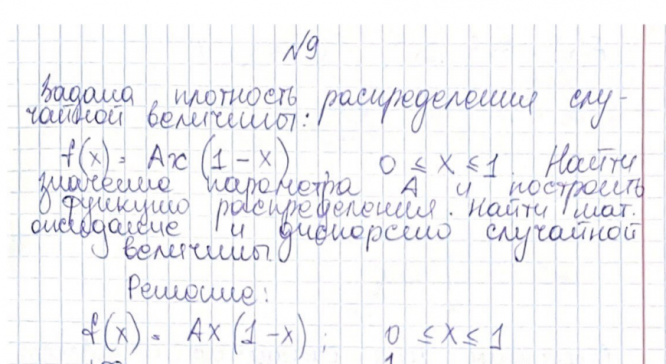 №9
Задана плотность распределения слу-
чайной величины:
f(x) = Ax (1 - x) , 0 ≤ x ≤ 1 Найти
значение параметра A и построить
функцию распределения. Найти мат.
ожидание и дисперсию случайной
величины.
Решение:
f(x) = Ax (1 - x) ; 0 ≤ x ≤ 1